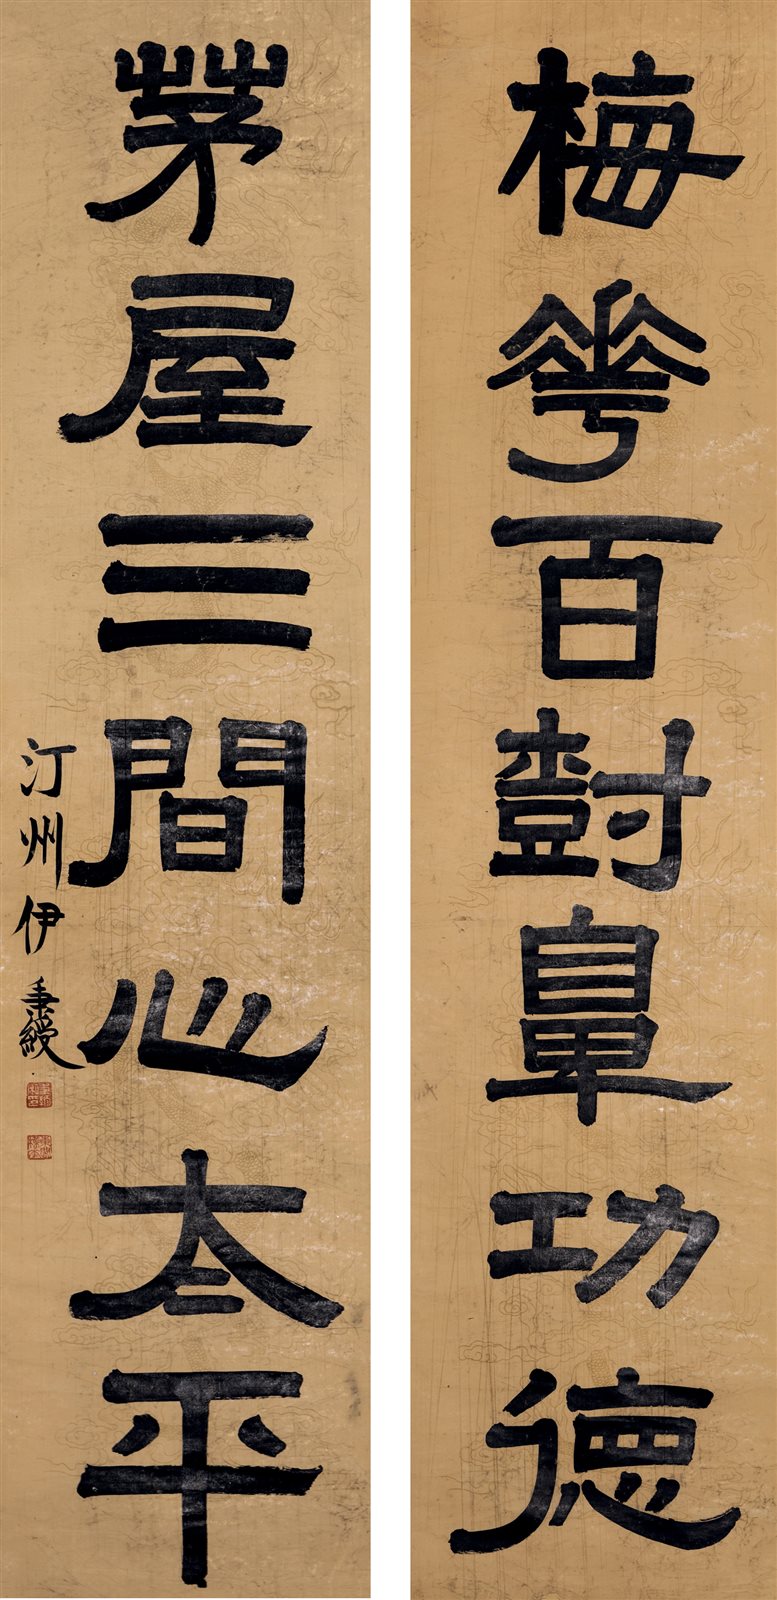 梅華百樹鼻功德
茅屋三間心太平
汀州伊秉綬